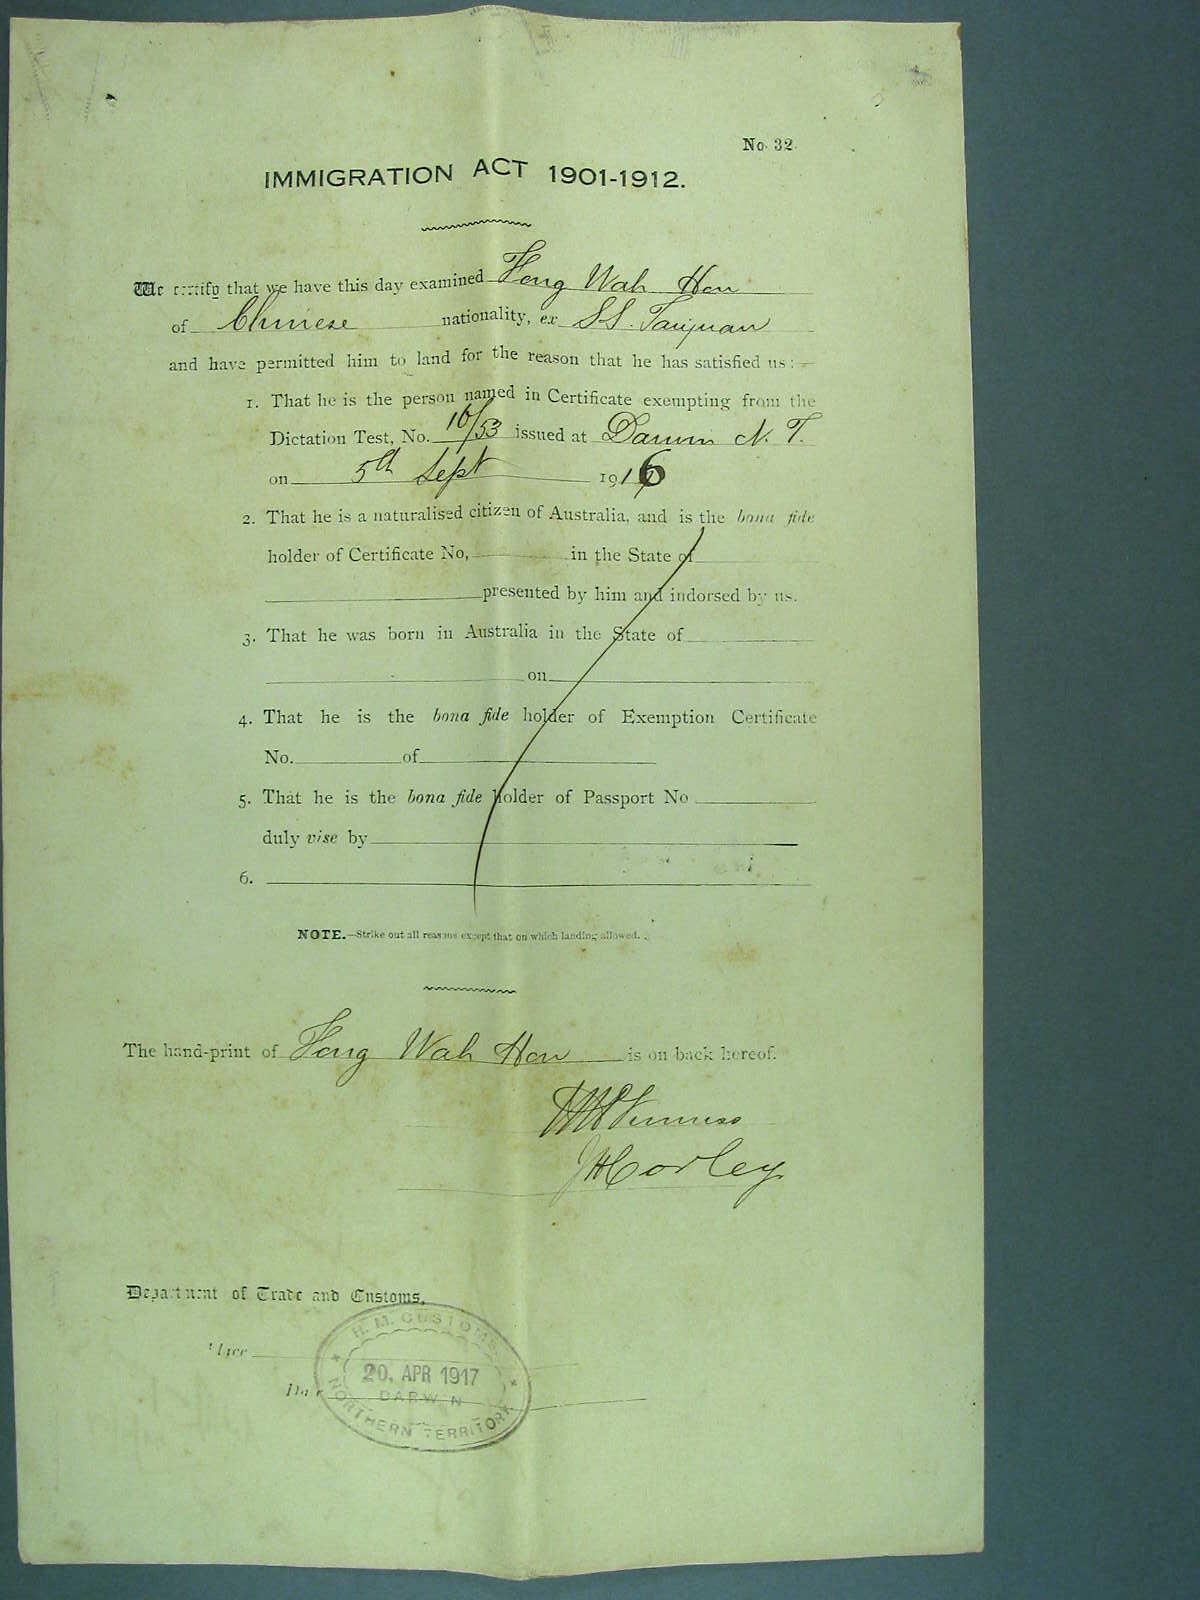 No. 32.
IMMIGRATION ACT 1901-1912.
We certify that we have this day examined Fong Wah Hon
of Chinese nationality, ex S.S. Taiyuan
and have permitted him to land for the reason that he has satisfied us:—
1. That he is the person named in Certificate exempting from the
Dictation Test, No. 16/53 issued at Darwin N. T.
on 5th Sept 1916
2. That he is a naturalised citizen of Australia, and is the bona fide
holder of Certificate No, in the State of
presented by him and indorsed by us.
3. That he was born in Australia in the State of
on
4. That he is the bona fide holder of Exemption Certificate
No. of
5. That he is the bona fide holder of Passport No
duly vise by
6.
NOTE.—Strike out all reasons except that on which landing allowed.
The hand-print of Fong Wah Hon is on back hereof.
JHCorley
Department of Trade and Customs,
Place
Date
H. M. CUSTOMS
20. APR 1917
DARWIN
NORTHERN TERRITORY